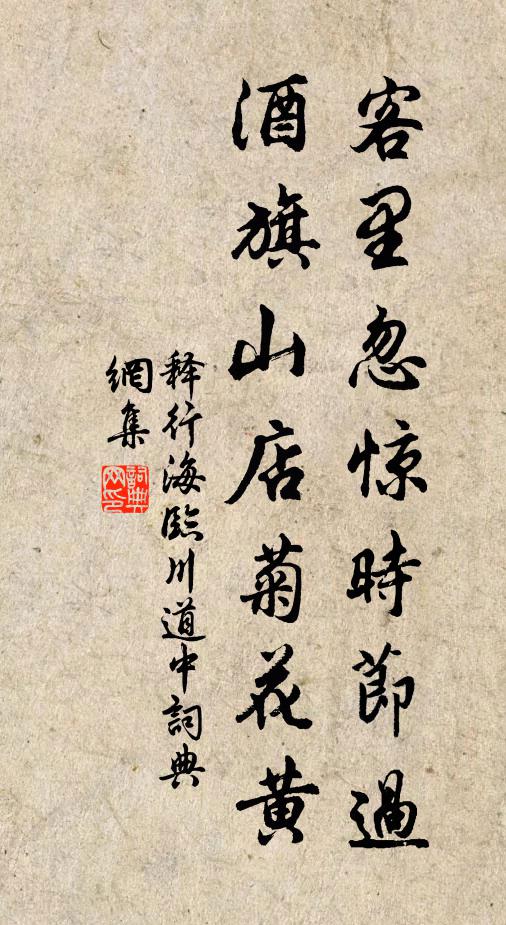 客里忽惊時節過
酒旗山店菊花黄
释行海臨川道中詞典
網集
詞典网印